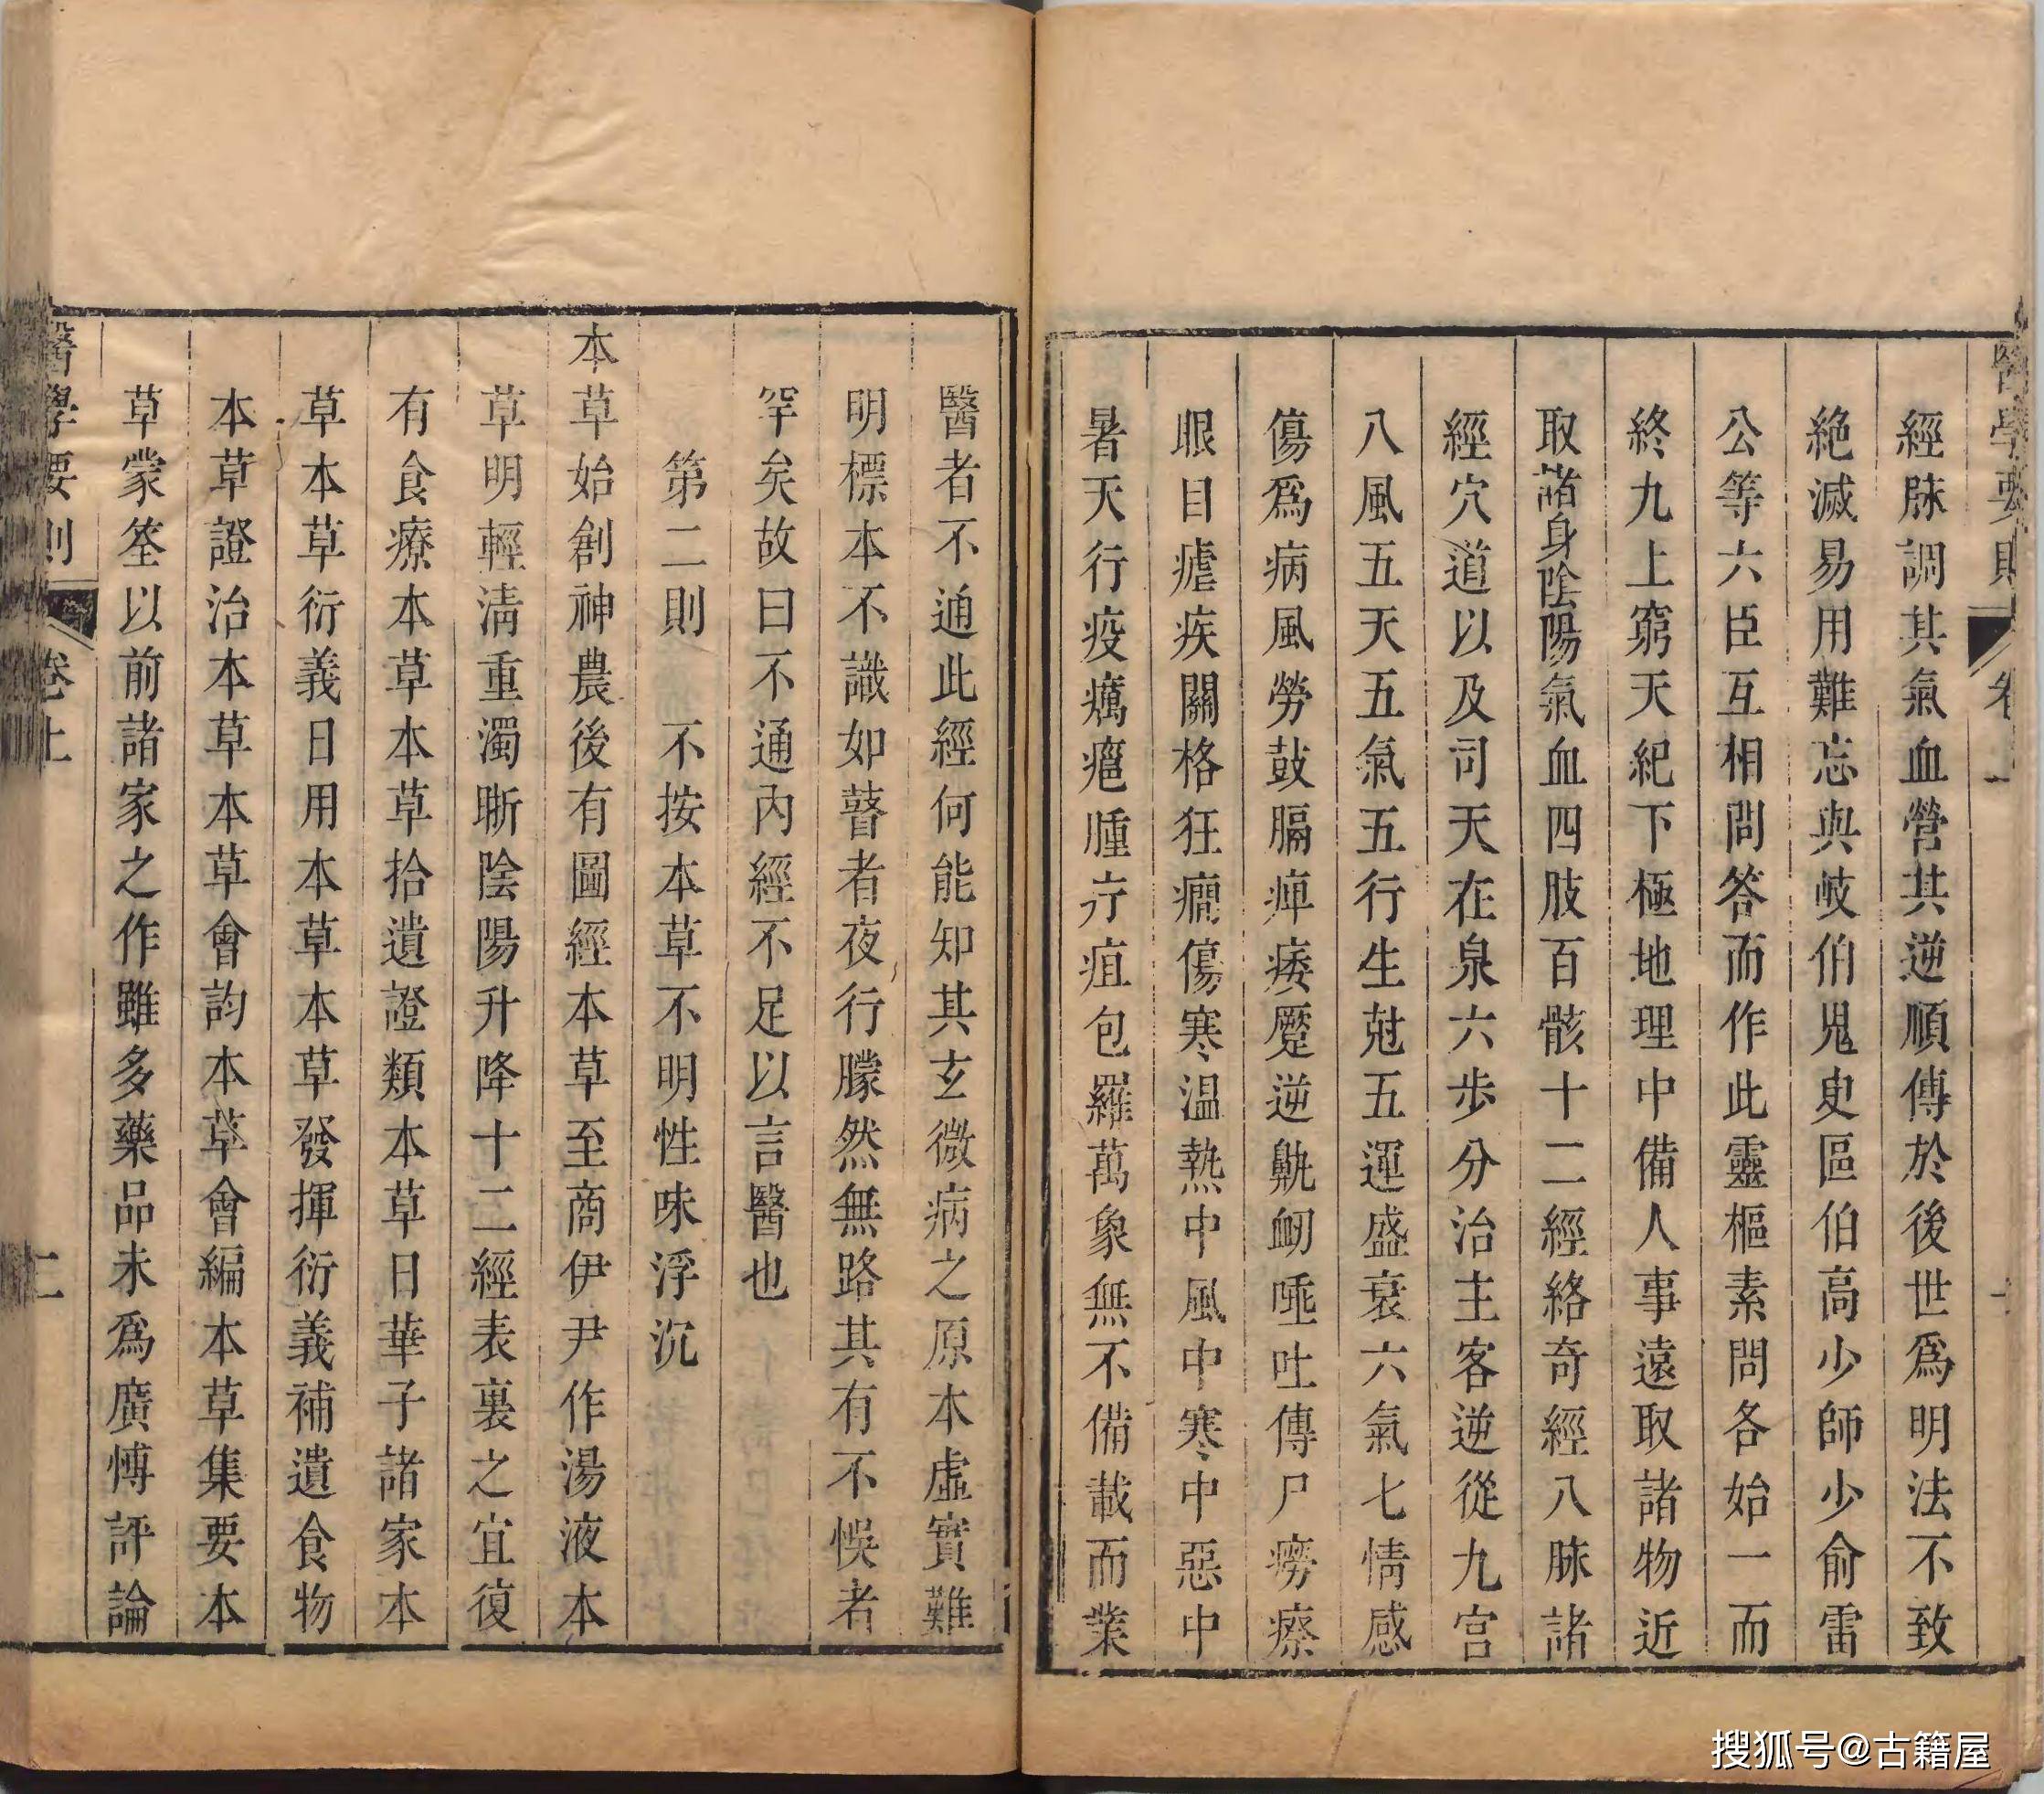 醫學要則
卷
一
經脉調其氣血營其逆順傳於後世爲明法不致
絶滅易用難忘與岐伯鬼臾區伯高少師少俞雷
公等六臣互相問答而作此靈樞素問各始一而
終九上窮天紀下極地理中備人事遠取諸物近
取諸身陰陽氣血四肢百骸十二經絡奇經八脉諸
經穴道以及司天在泉六步分治主客逆從九宫
八風五天五氣五行生尅五運盛衰六氣七情感
傷爲病風勞鼓膈痺痿蹷逆鼽衂唾吐傳尸癆瘵
眼目瘧疾關格狂癇傷寒温熱中風中寒中惡中
暑天行疫癘瘡腫疔疽包羅萬象無不備載而業
醫者不通此經何能知其玄微病之原本虛實難
明標本不識如瞽者夜行朦然無路其有不悞者
罕矣故曰不通內經不足以言醫也
第二則 不按本草不明性味浮沉
本草始創神農後有圖經本草至商伊尹作湯液本
草明輕清重濁晰陰陽升降十二經表裏之宜復
有食療本草本草拾遺證類本草日華子諸家本
草本草衍義日用本草本草發揮衍義補遺食物
本草證治本草本草會韵本草會編本草集要本
草蒙筌以前諸家之作雖多藥品未爲廣愽評論
醫學要則
卷上
二
搜狐号@古籍屋